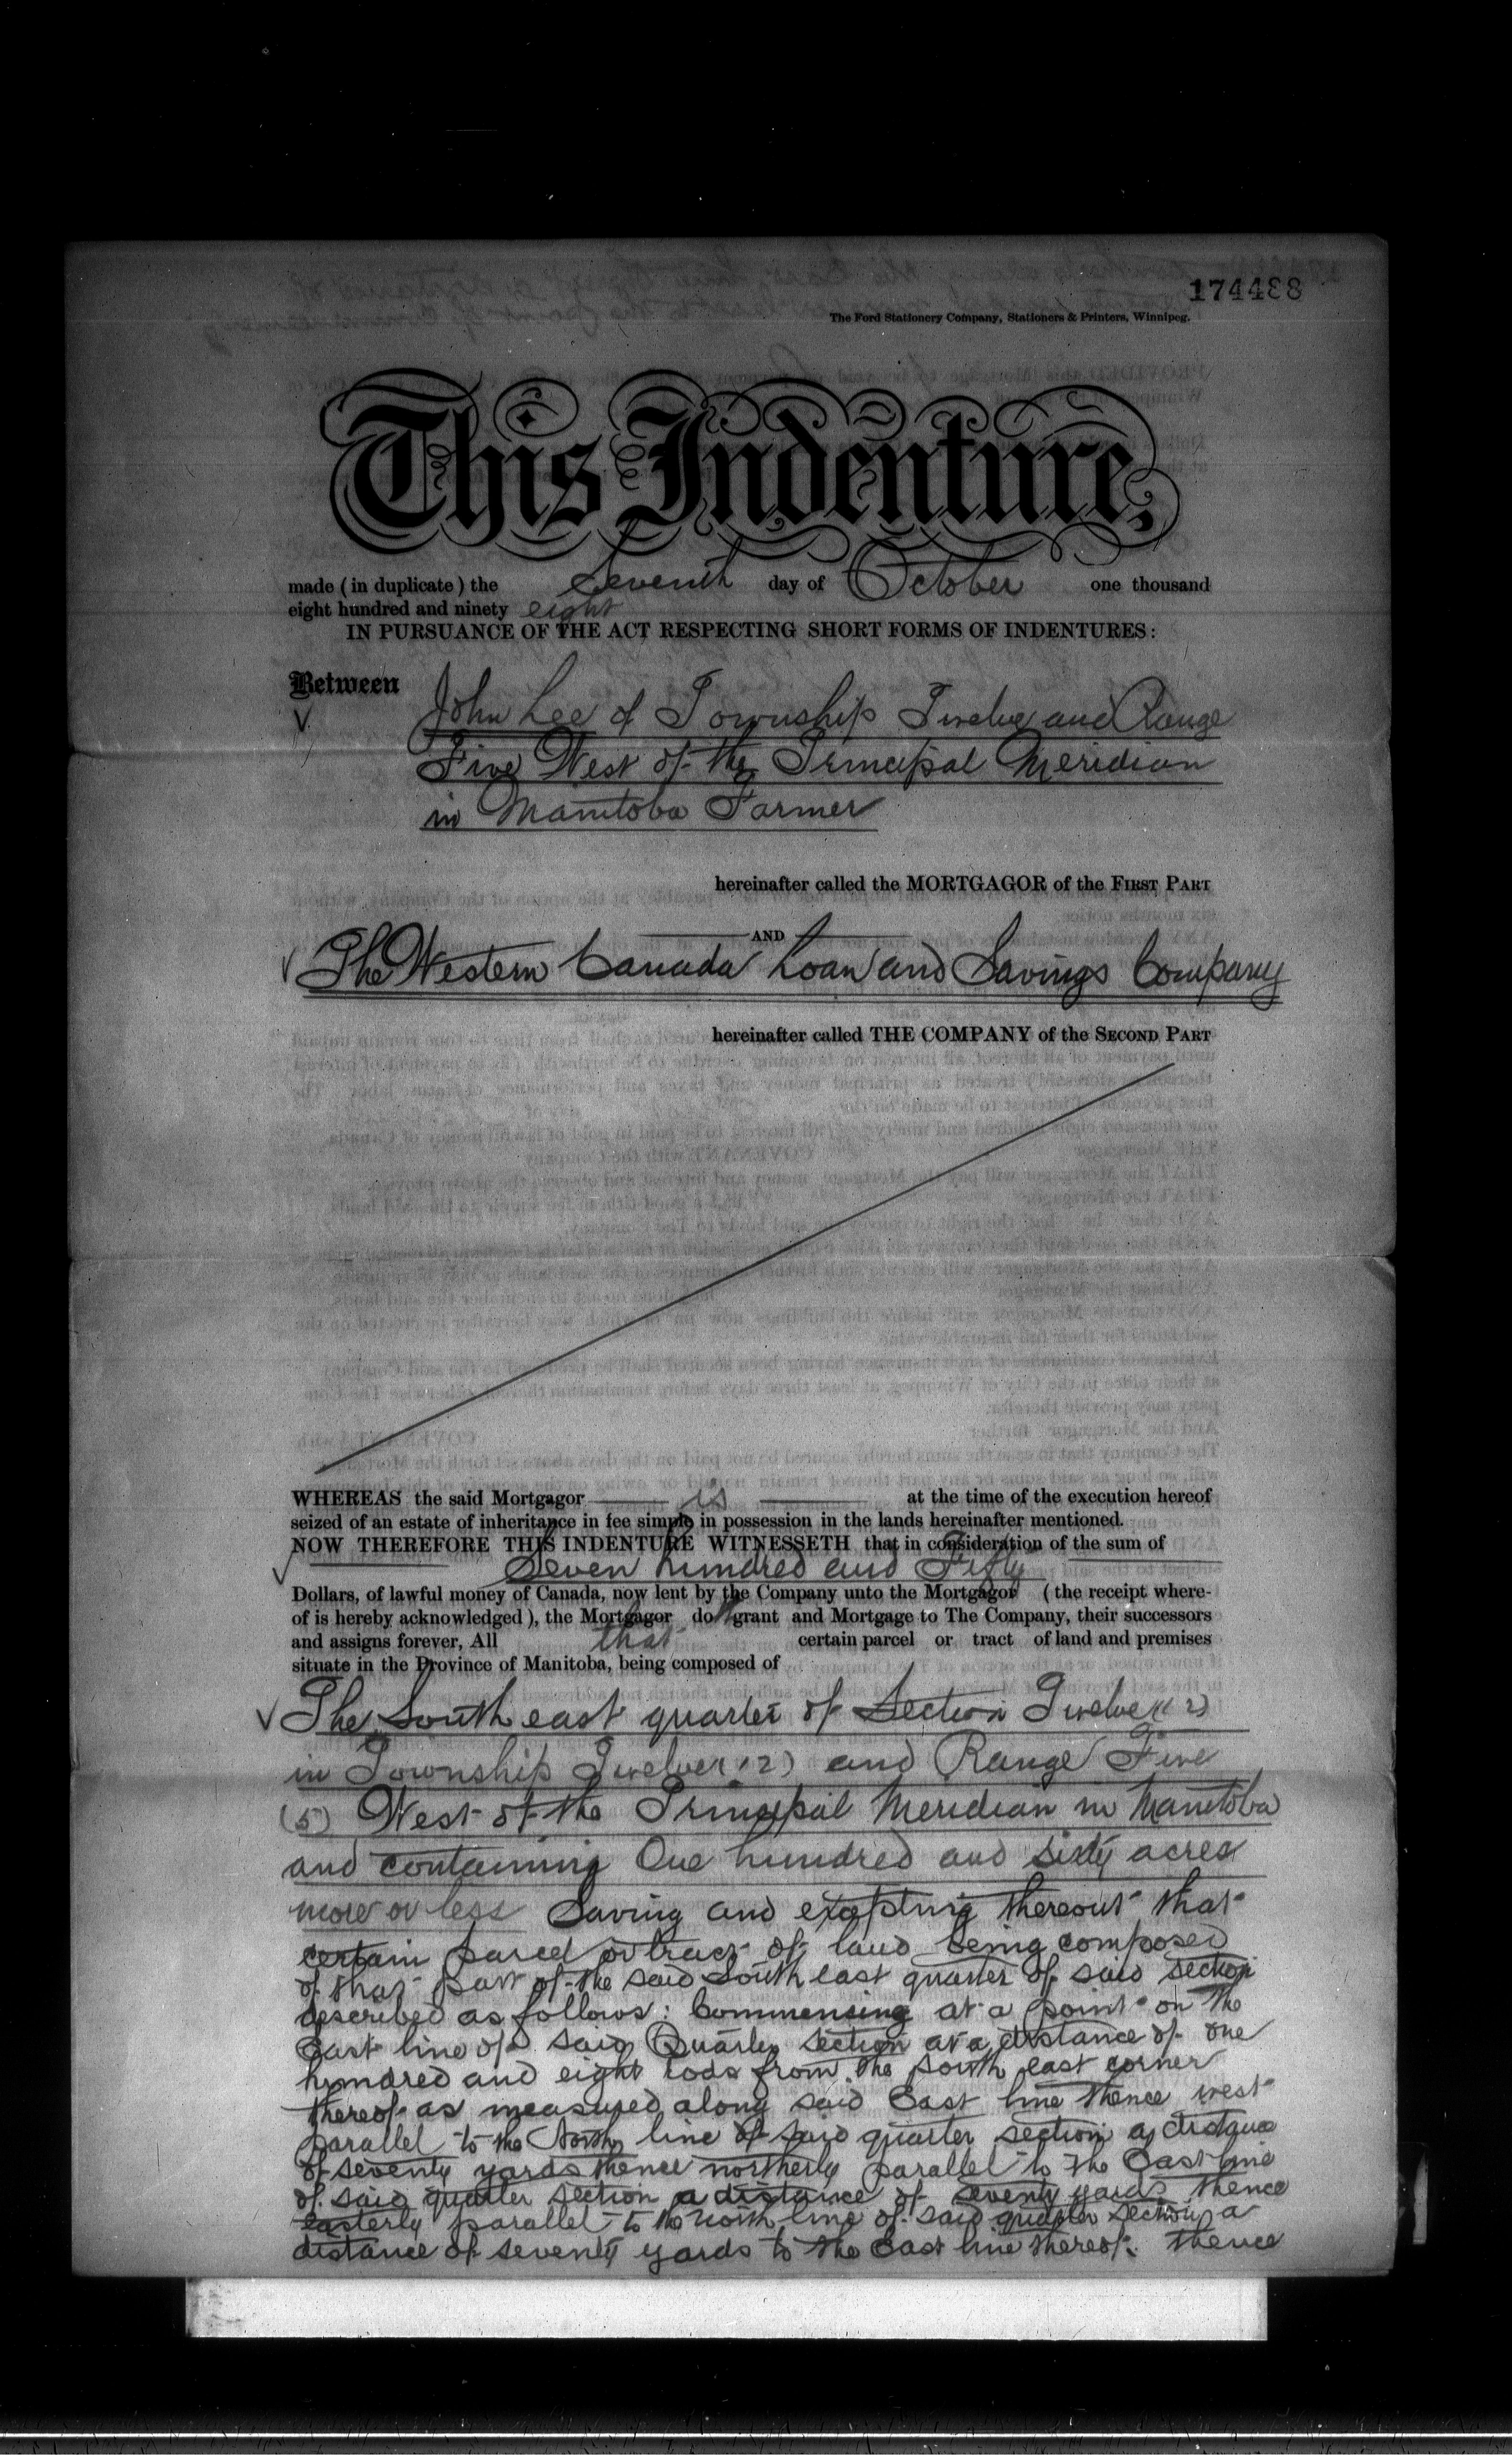 174488
The Ford Stationery Company, Stationers & Printers, Winnipeg.
This Indenture,
made (in duplicate) the Seventh day of October one thousand
eight hundred and ninety eight
IN PURSUANCE OF THE ACT RESPECTING SHORT FORMS OF INDENTURES:
Between
John Lee of Township Twelve and Range
Five West of the Principal Meridian
in Manitoba Farmer
hereinafter called the MORTGAGOR of the FIRST PART
AND
The Western Canada Loan and Savings Company
hereinafter called THE COMPANY of the SECOND PART
WHEREAS the said Mortgagor is at the time of the execution hereof
seized of an estate of inheritance in fee simple in possession in the lands hereinafter mentioned.
NOW THEREFORE THIS INDENTURE WITNESSETH that in consideration of the sum of
Seven hundred and Fifty
Dollars, of lawful money of Canada, now lent by the Company unto the Mortgagor (the receipt where-
of is hereby acknowledged), the Mortgagor doth grant and Mortgage to The Company, their successors
and assigns forever, All that certain parcel or tract of land and premises
situate in the Province of Manitoba, being composed of
The South east quarter of Section Twelve (12)
in Township Twelve (12) and Range Five
(5) West of the Principal Meridian in Manitoba
and containing One hundred and sixty acres
more or less Saving and excepting thereout that
certain parcel or tract of land being composed
of that part of the said South east quarter of said section
described as follows: Commencing at a point on the
East line of said Quarter section at a distance of one
hundred and eight rods from the south east corner
thereof as measured along said East line thence west
parallel to the North line of said quarter section a distance
of seventy yards thence northerly parallel to the East line
of said quarter section a distance of seventy yards thence
easterly parallel to the North line of said quarter section a
distance of seventy yards to the East line thereof: thence